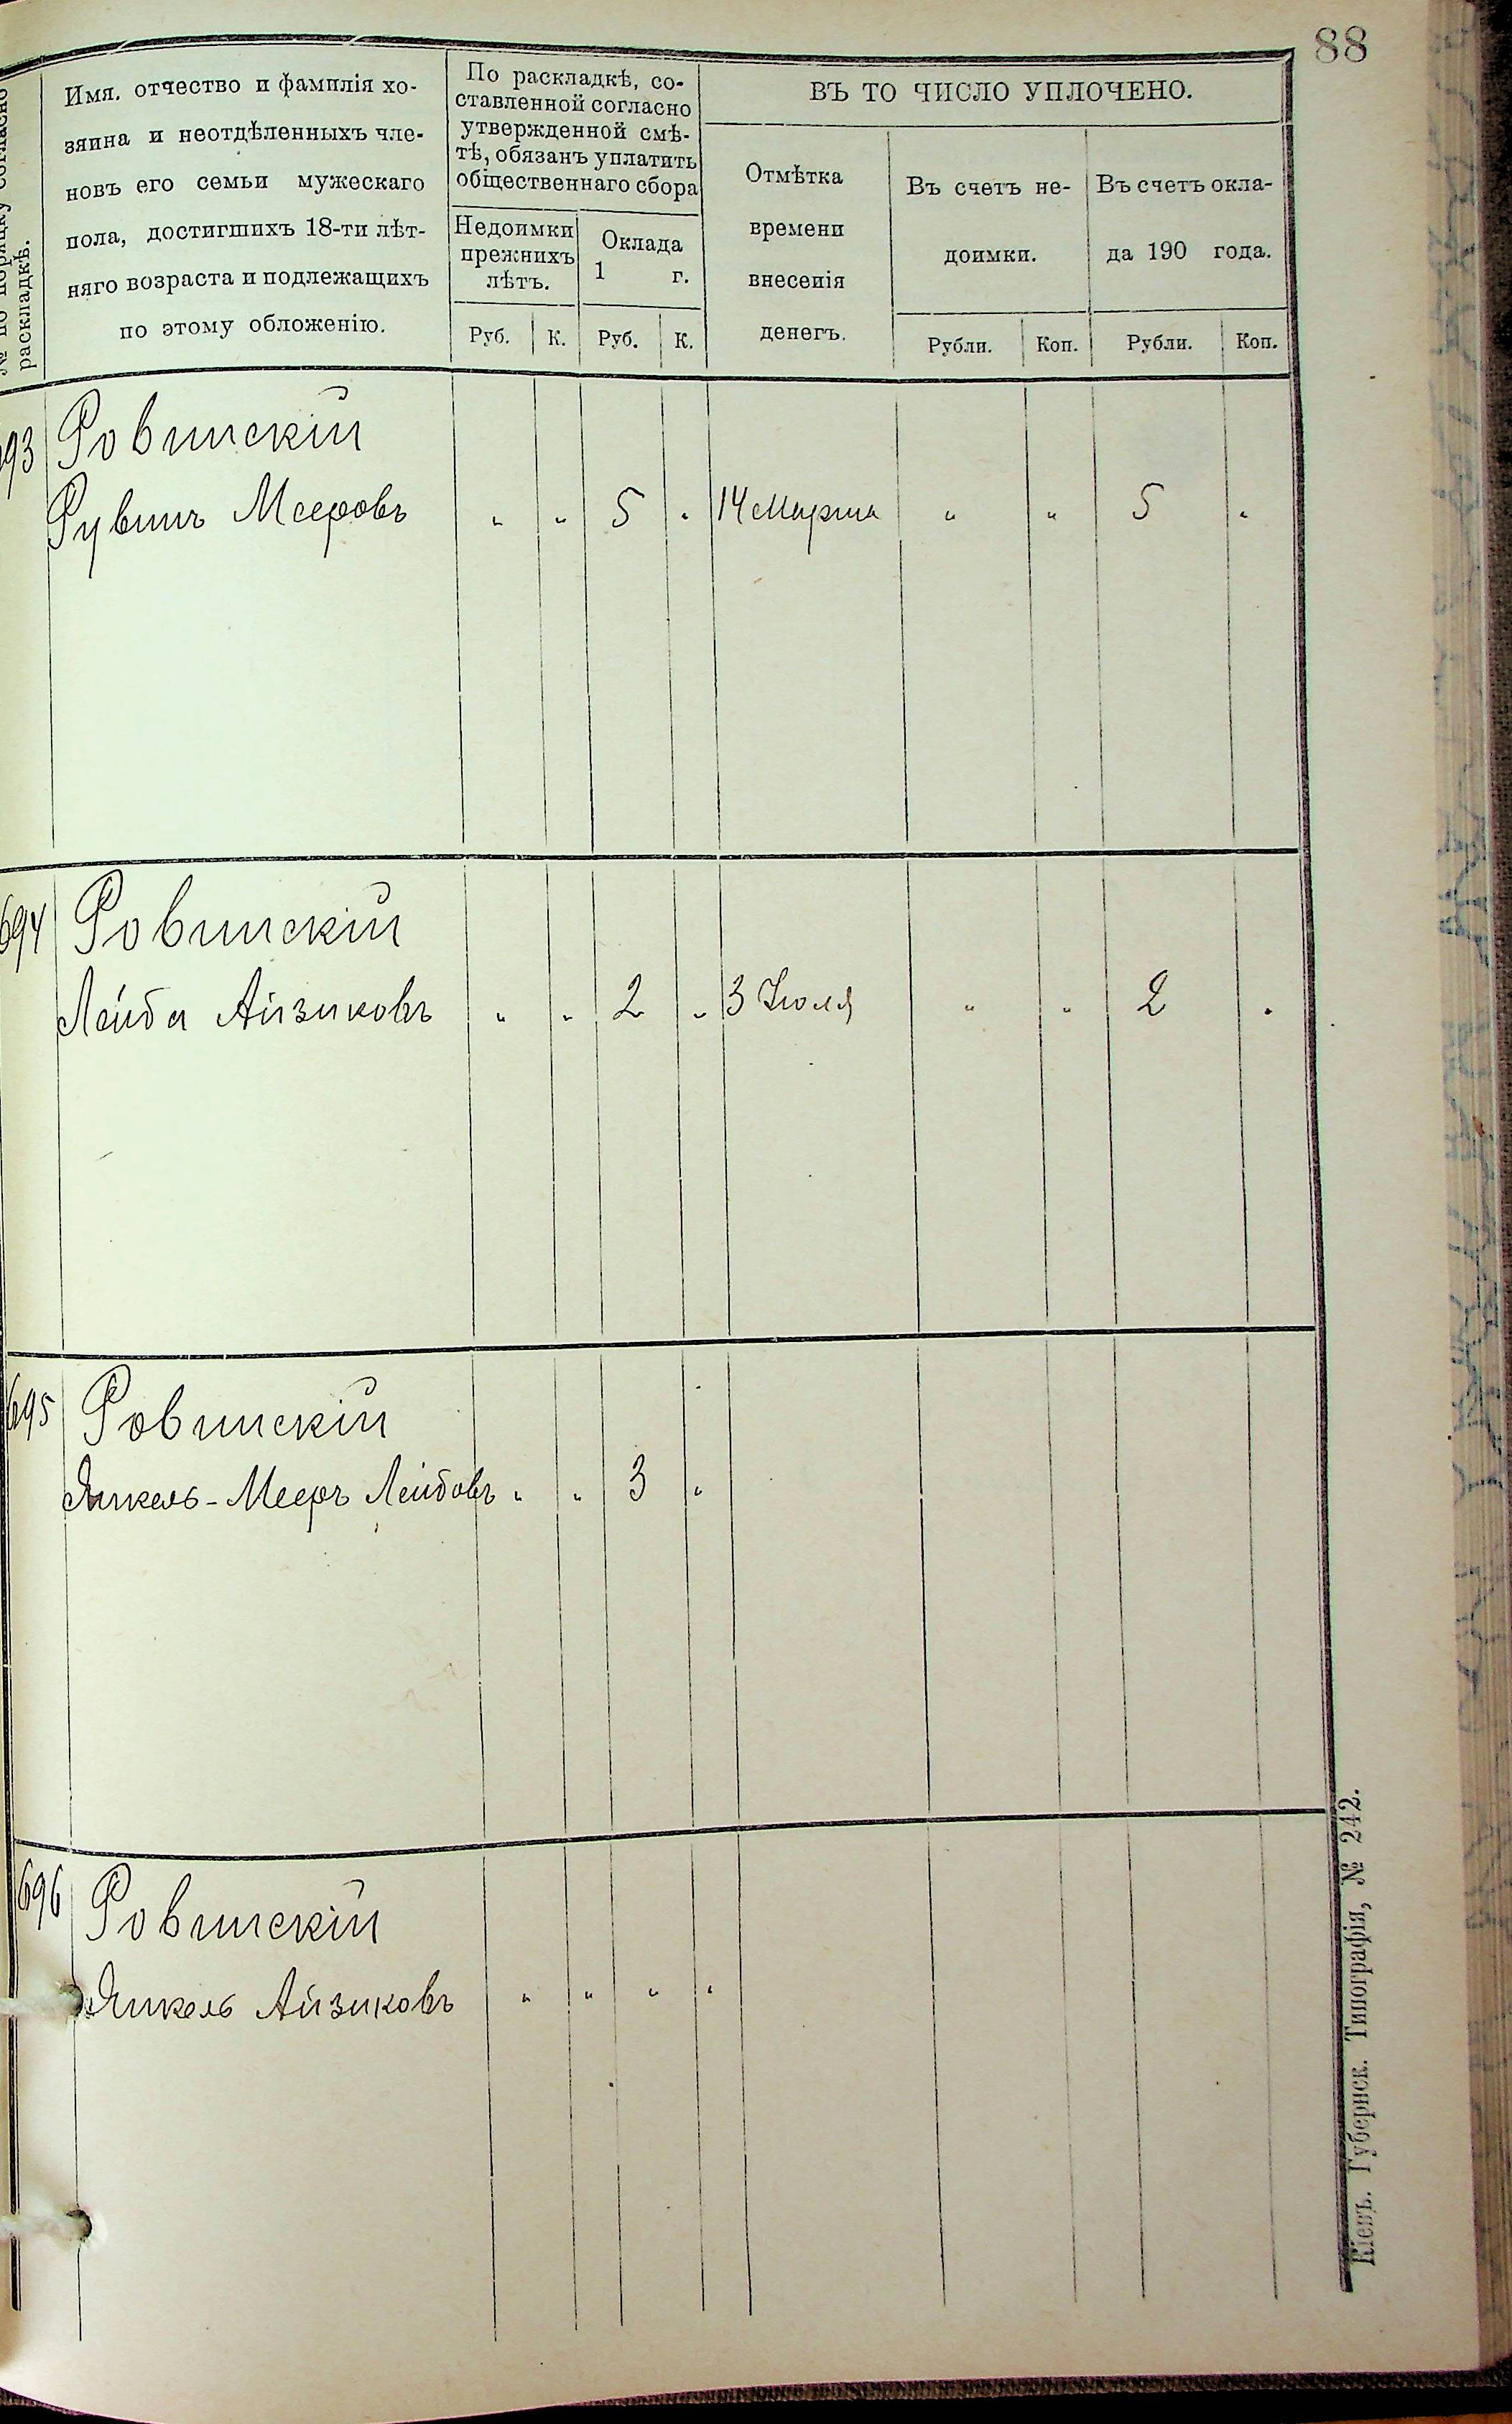 88
№ по порядку согласно
раскладкѣ.
Имя, отчество и фамилія хо-
зяина и неотдѣленныхъ чле-
новъ его семьи мужескаго
пола, достигшихъ 18-ти лѣт-
няго возраста и подлежащихъ
по этому обложенію.
По раскладкѣ, со-
ставленной согласно
утвержденной смѣ-
тѣ, обязанъ уплатить
общественнаго сбора
Недоимки
прежнихъ
лѣтъ.
Оклада
1 г.
Руб. К. Руб. К.
ВЪ ТО ЧИСЛО УПЛОЧЕНО.
Отмѣтка
времени
внесенія
денегъ.
Въ счетъ не-
доимки.
Въ счетъ окла-
да 190 года.
Рубли. Коп. Рубли. Коп.
93 Ровинскій
Рувинъ Мееровъ " " 5 " 14 Марта " " 5 "
694 Ровинскій
Лейба Айзиковъ " " 2 " 3 Іюля " " 2 "
695 Ровинскій
Янкель-Мееръ Лейбовъ " " 3 "
696 Ровинскій
Янкель Айзиковъ " " " "
Кіевъ. Губернск. Типографія, № 242.